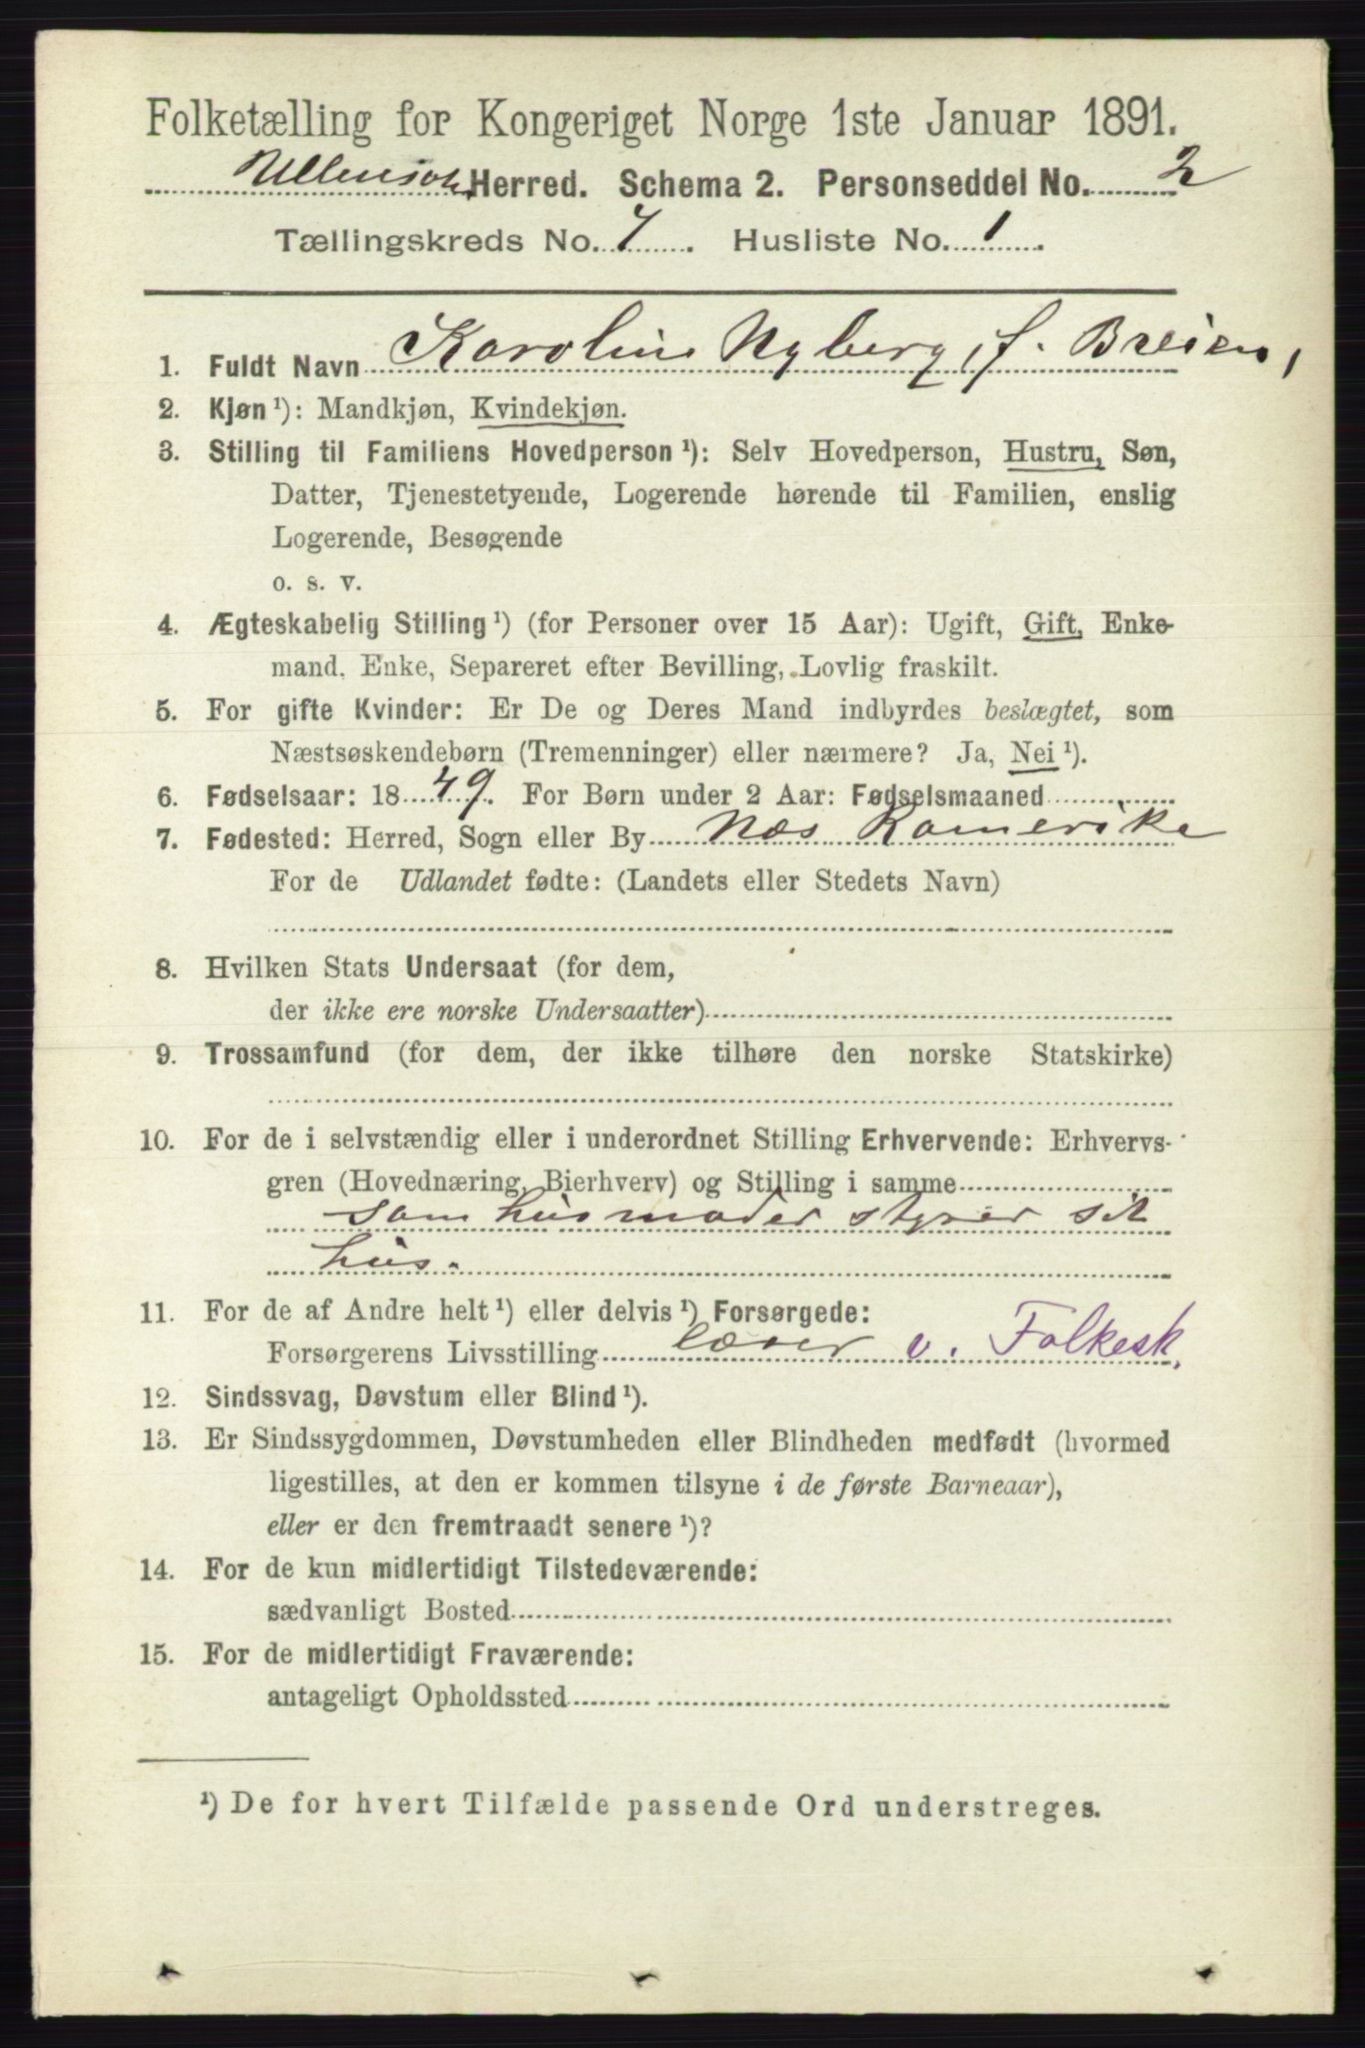 Folketælling for Kongeriget Norge 1ste Januar 1891.
Ullensak. Herred. Schema 2. Personseddel No. 2
Tællingskreds No. 7. Husliste No. 1.
1. Fuldt Navn Karoline Nyberg, f. Breien,
2. Kjøn¹): Mandkjøn, Kvindekjøn.
3. Stilling til Familiens Hovedperson¹): Selv Hovedperson, Hustru, Søn,
Datter, Tjenestetyende, Logerende hørende til Familien, enslig
Logerende, Besøgende
o. s. v.
4. Ægteskabelig Stilling¹) (for Personer over 15 Aar): Ugift, Gift, Enke-
mand, Enke, Separeret efter Bevilling, Lovlig fraskilt.
5. For gifte Kvinder: Er De og Deres Mand indbyrdes beslægtet, som
Næstsøskendebørn (Tremenninger) eller nærmere? Ja, Nei¹).
6. Fødselsaar: 1849. For Børn under 2 Aar: Fødselsmaaned
7. Fødested: Herred, Sogn eller By Næs Romerike
For de Udlandet fødte: (Landets eller Stedets Navn)
8. Hvilken Stats Undersaat (for dem,
der ikke ere norske Undersaatter)
9. Trossamfund (for dem, der ikke tilhøre den norske Statskirke)
10. For de i selvstændig eller i underordnet Stilling Erhvervende: Erhvervs-
gren (Hovednæring, Bierhverv) og Stilling i samme
som husmoder styrer sit
hus.
11. For de af Andre helt¹) eller delvis¹) Forsørgede:
Forsørgerens Livsstilling lærer v. Folkesk.
12. Sindssvag, Døvstum eller Blind¹).
13. Er Sindssygdommen, Døvstumheden eller Blindheden medfødt (hvormed
ligestilles, at den er kommen tilsyne i de første Barneaar),
eller er den fremtraadt senere¹)?
14. For de kun midlertidigt Tilstedeværende:
sædvanligt Bosted
15. For de midlertidigt Fraværende:
antageligt Opholdssted
¹) De for hvert Tilfælde passende Ord understreges.